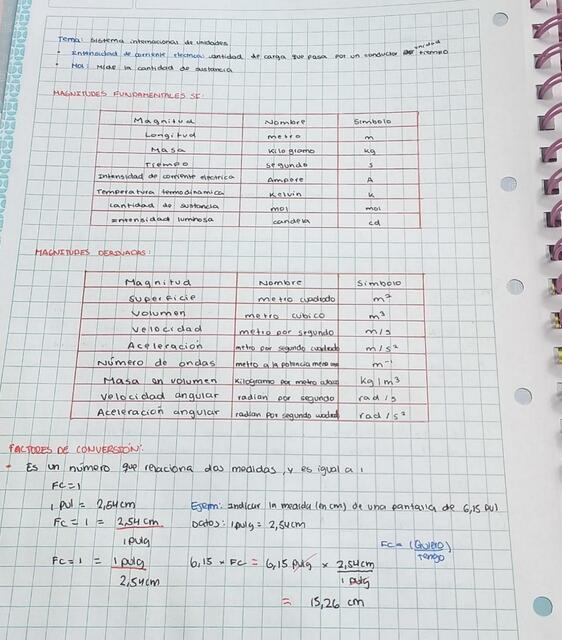 Tema: Sistema internacional de unidades
• Intensidad de corriente electrica: cantidad de carga que pasa por un conductor unidad tiempo
• Mol: Mide la cantidad de sustancia
MAGNITUDES FUNDAMENTALES SI:
Magnitud Nombre Simbolo
Longitud metro m
Masa Kilogramo kg
Tiempo segundo s
Intensidad de corriente electrica Ampere A
Temperatura termodinamica Kelvin K
Cantidad de sustancia mol mol
Intensidad luminosa candela cd
MAGNITUDES DERIVADAS:
Magnitud Nombre Simbolo
Superficie metro cuadrado m²
Volumen metro cubico m³
Velocidad metro por segundo m/s
Aceleracion metro por segundo cuadrado m/s²
Número de ondas metro a la potencia menos m⁻¹
Masa en volumen Kilogramo por metro kg/m³
Velocidad angular radian por segundo rad/s
Aceleracion angular radian por segundo rad/s²
FACTORES DE CONVERSIÓN:
• Es un número que relaciona dos medidas, y es igual a 1
FC=1
1 pul = 2,54cm Ejem: Indicar la medida (en cm) de una pantalla de 6,15 pul
FC = 1 = 2,54 cm Datos: 1pulg = 2,54cm
1pulg
FC= (Quiero)
Tengo
FC=1 = 1 pulg 6,15 × FC = 6,15 pulg × 2,54cm
2,54cm 1 pulg
= 15,26 cm